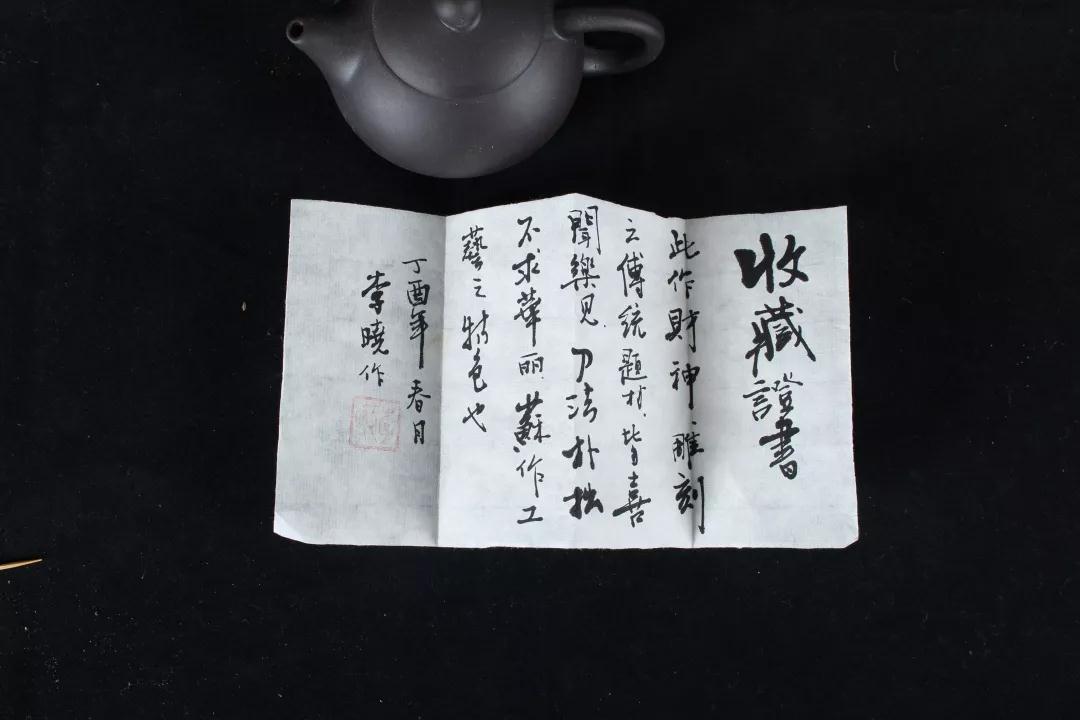 收藏證書
此作財神、雕刻
之傳統題材、皆喜
聞樂見、刀法朴拙
不求華丽、蘇作工
藝之特色也
丁酉年春月
李曉作